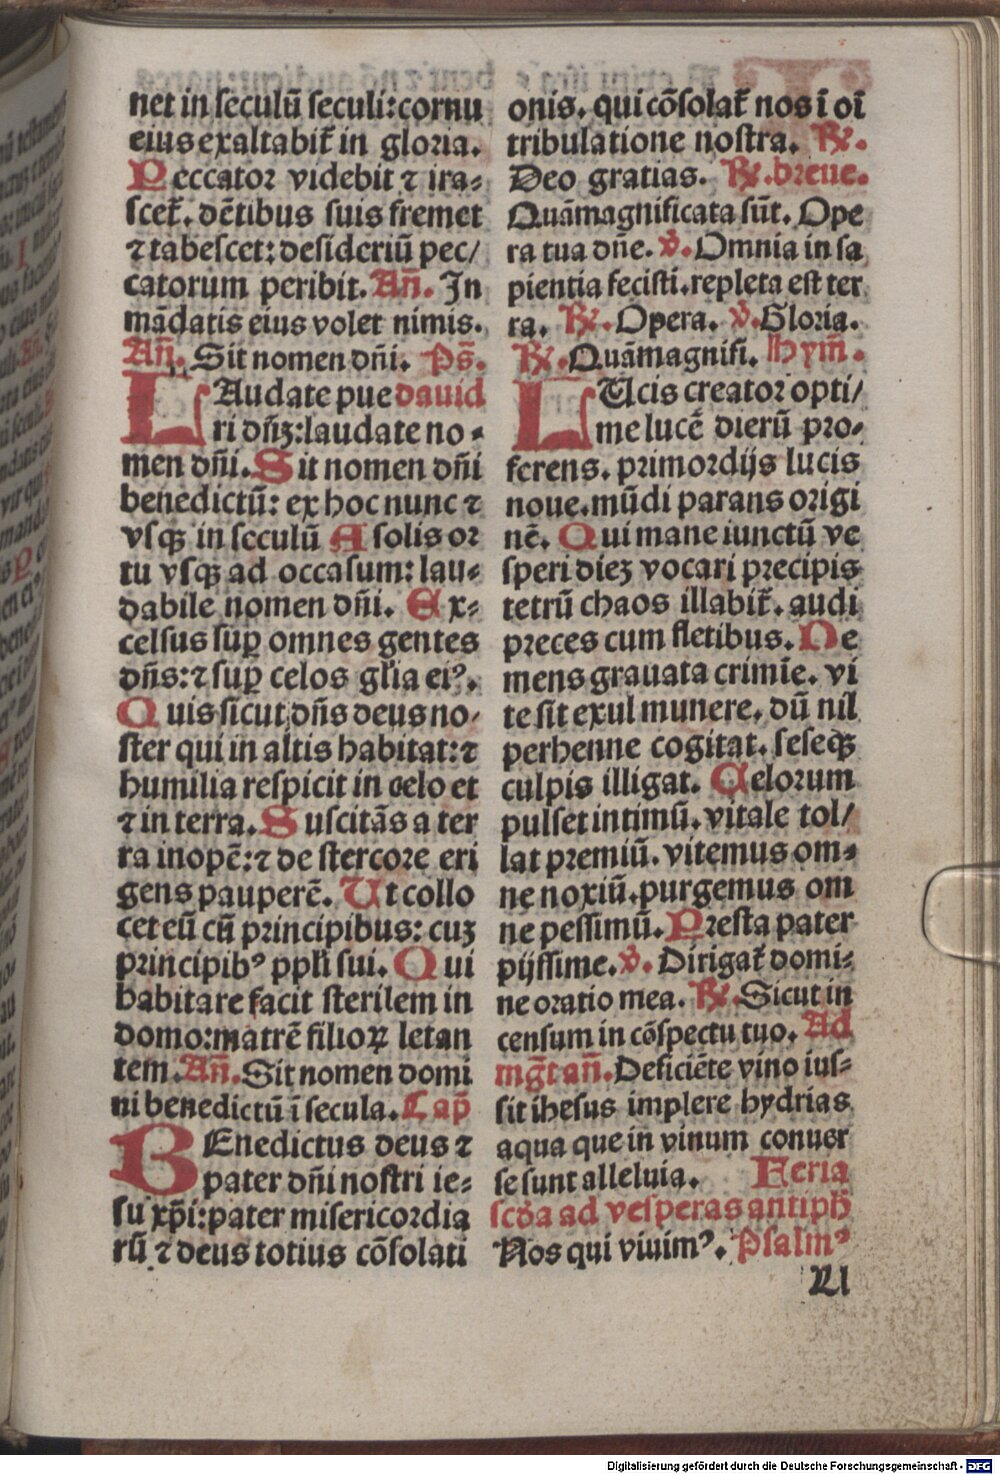 net in seculū seculi: cornu
eius exaltabit̃ in gloria.
Peccator videbit ⁊ ira⸗
scet̃. dētibus suis fremet
⁊ tabescet: desideriū pec/
catorum peribit. Añ. In
mādatis eius volet nimis.
Añ. Sit nomen dñi. Ps̄.
LAudate pue dauid
ri dñꝫ: laudate no⸗
men dñi. Sit nomen dñi
benedictū: ex hoc nunc ⁊
vsqꝫ in seculū A solis or
tu vsqꝫ ad occasum: lau⸗
dabile nomen dñi. Ex⸗
celsus suꝑ omnes gentes
dñs: ⁊ suꝑ celos gl̃ia eiꝰ.
Quis sicut dñs deus no/
ster qui in altis habitat: ⁊
humilia respicit in celo et
⁊ in terra. Suscitās a ter
ra inopē: ⁊ de stercore eri
gens pauperē. Ut collo
cet eū cū principibus: cuꝫ
principibꝰ ppl̃i sui. Qui
habitare facit sterilem in
domo: matrē filioꝝ letan
tem. Añ. Sit nomen domi
ni benedictū ī secula. Cap̄
BEnedictus deus ⁊
pater dñi nostri ie⸗
su xp̄i: pater misericordia
rū ⁊ deus totius cōsolati
onis. qui cōsolat̃ nos ī oī
tribulatione nostra. ℟.
Deo gratias. ℟. breue.
Quāmagnificata sūt. Ope
ra tua dñe. ℣. Omnia in sa
pientia fecisti. repleta est ter
ra. ℟. Opera. ℣. Gloria.
℟. Quāmagnifi. Hym̄.
LUcis creator opti/
me lucē dierū pro⸗
ferens. primordijs lucis
noue. mūdi parans origi
nē. Qui mane iunctū ve
speri dieꝫ vocari precipis
tetrū chaos illabit̃. audi
preces cum fletibus. Ne
mens grauata crimīe. vi
te sit exul munere. dū nil
perhenne cogitat. seseqꝫ
culpis illigat. Celorum
pulset intimū. vitale tol/
lat premiū. vitemus om⸗
ne noxiū. purgemus om
ne pessimū. Presta pater
pijssime. ℣. Dirigat̃ domi⸗
ne oratio mea. ℟. Sicut in
censum in cōspectu tuo. Ad
mg̃t añ. Deficiēte vino ius⸗
sit ihesus implere hydrias
aqua que in vinum conuer
se sunt alleluia. Feria
scd̃a ad vesperas antiph̃
Nos qui viuimꝰ. Psalmꝰ